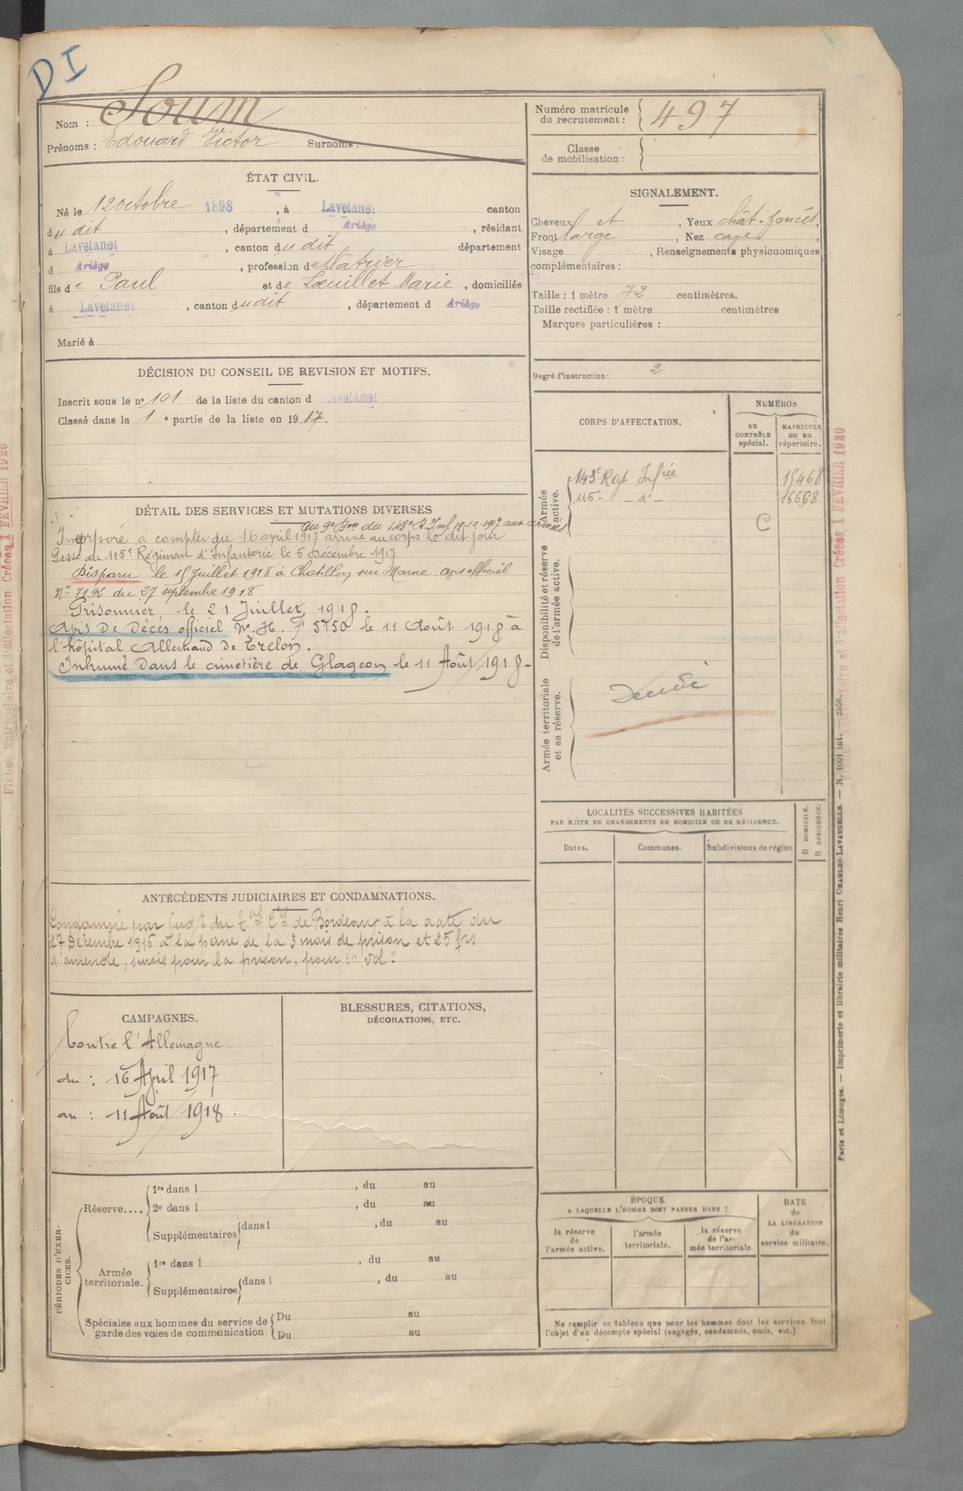 DI
Nom : Soum
Prénoms : Edouard Victor Surnoms :
Numéro matricule du recrutement : 497
Classe de mobilisation :
ÉTAT CIVIL.
Né le 12 octobre 1898, à Lavelanet canton
du dit, département d Ariège, résidant
à Lavelanet, canton du dit département
d Ariège, profession de Plâtrier
fils de Paul et de Lœuillet Marie, domiciliés
à Lavelanet, canton du dit, département d Ariège
Marié à
SIGNALEMENT.
Cheveux et, Yeux chât. foncés,
Front large, Nez cave,
Visage, Renseignements physionomiques
complémentaires :
Taille : 1 mètre 72 centimètres.
Taille rectifiée : 1 mètre centimètres
Marques particulières :
Degré d'instruction : 2
DÉCISION DU CONSEIL DE REVISION ET MOTIFS.
Inscrit sous le nº 101 de la liste du canton d Lavelanet
Classé dans la 1 e partie de la liste en 1917.
DÉTAIL DES SERVICES ET MUTATIONS DIVERSES
au 9e Bon du 143e R. Inf 10-10-1917 aux
Incorporé à compter du 16 april 1917 arrivé au corps le dit jour
Passé au 115e Régiment d'Infanterie le 5 Décembre 1917
Disparu le 15 Juillet 1918 à Chatillon sur Marne. avis officiel
Nº du 27 septembre 1918
Prisonnier le 21 Juillet 1918.
Avis de Décès officiel 5750 le 11 Août 1918 à
l'hôpital Allemand de Trelon.
Inhumé dans le cimetière de Glageon le 11 Août 1918 -
CORPS D'AFFECTATION.
NUMÉROS
AU CONTRÔLE spécial.
MATRICULE OU AU répertoire.
Armée active.
143e Régt Infrie 15468
115e - d° - 16668
C
Disponibilité et réserve de l'armée active.
Armée territoriale et sa réserve.
LOCALITÉS SUCCESSIVES HABITÉES
PAR SUITE DE CHANGEMENTS DE DOMICILE OU DE RÉSIDENCE.
Dates.
Communes.
Subdivisions de région
D DOMICILE.
R RÉSIDENCE.
ANTÉCÉDENTS JUDICIAIRES ET CONDAMNATIONS.
Condamné par jugt du Bal Cel de Bordeaux à la date du
27 Décembre 1916 à la peine de la 3 mois de prison et 25 frs
d'amende, sursis pour la prison, pour "vol"
CAMPAGNES.
Contre l'Allemagne
du : 16 April 1917
au : 11 Août 1918
BLESSURES, CITATIONS,
DÉCORATIONS, ETC.
PÉRIODES D'EXERCICES.
Réserve....
1re dans l, du au
2e dans l, du au
Supplémentaires dans l, du au
Armée territoriale.
1re dans l, du au
Supplémentaires dans l, du au
Spéciales aux hommes du service de garde des voies de communication
Du au
Du au
ÉPOQUE
A LAQUELLE L'HOMME DOIT PASSER DANS :
la réserve de l'armée active.
l'armée territoriale.
la réserve de l'armée territoriale
DATE de LA LIBÉRATION du service militaire.
Ne remplir ce tableau que pour les hommes dont les services font
l'objet d'un décompte spécial (engagés, condamnés, omis, etc.)
Paris et Limoges. — Imprimerie et librairie militaires Henri CHARLES-LAVAUZELLE. —
Fiches Matriculaire et d'affectation Créées 1 FEVRIER 1920